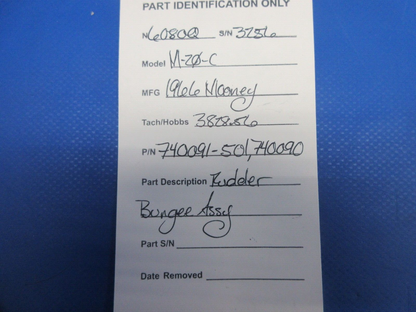 PART IDENTIFICATION ONLY
N6080Q S/N 3256
Model M-20-C
MFG 1966 Mooney
Tach/Hobbs 3828.56
P/N 740091-501,740090
Part Description Rudder
Bungee Assy
Part S/N
Date Removed